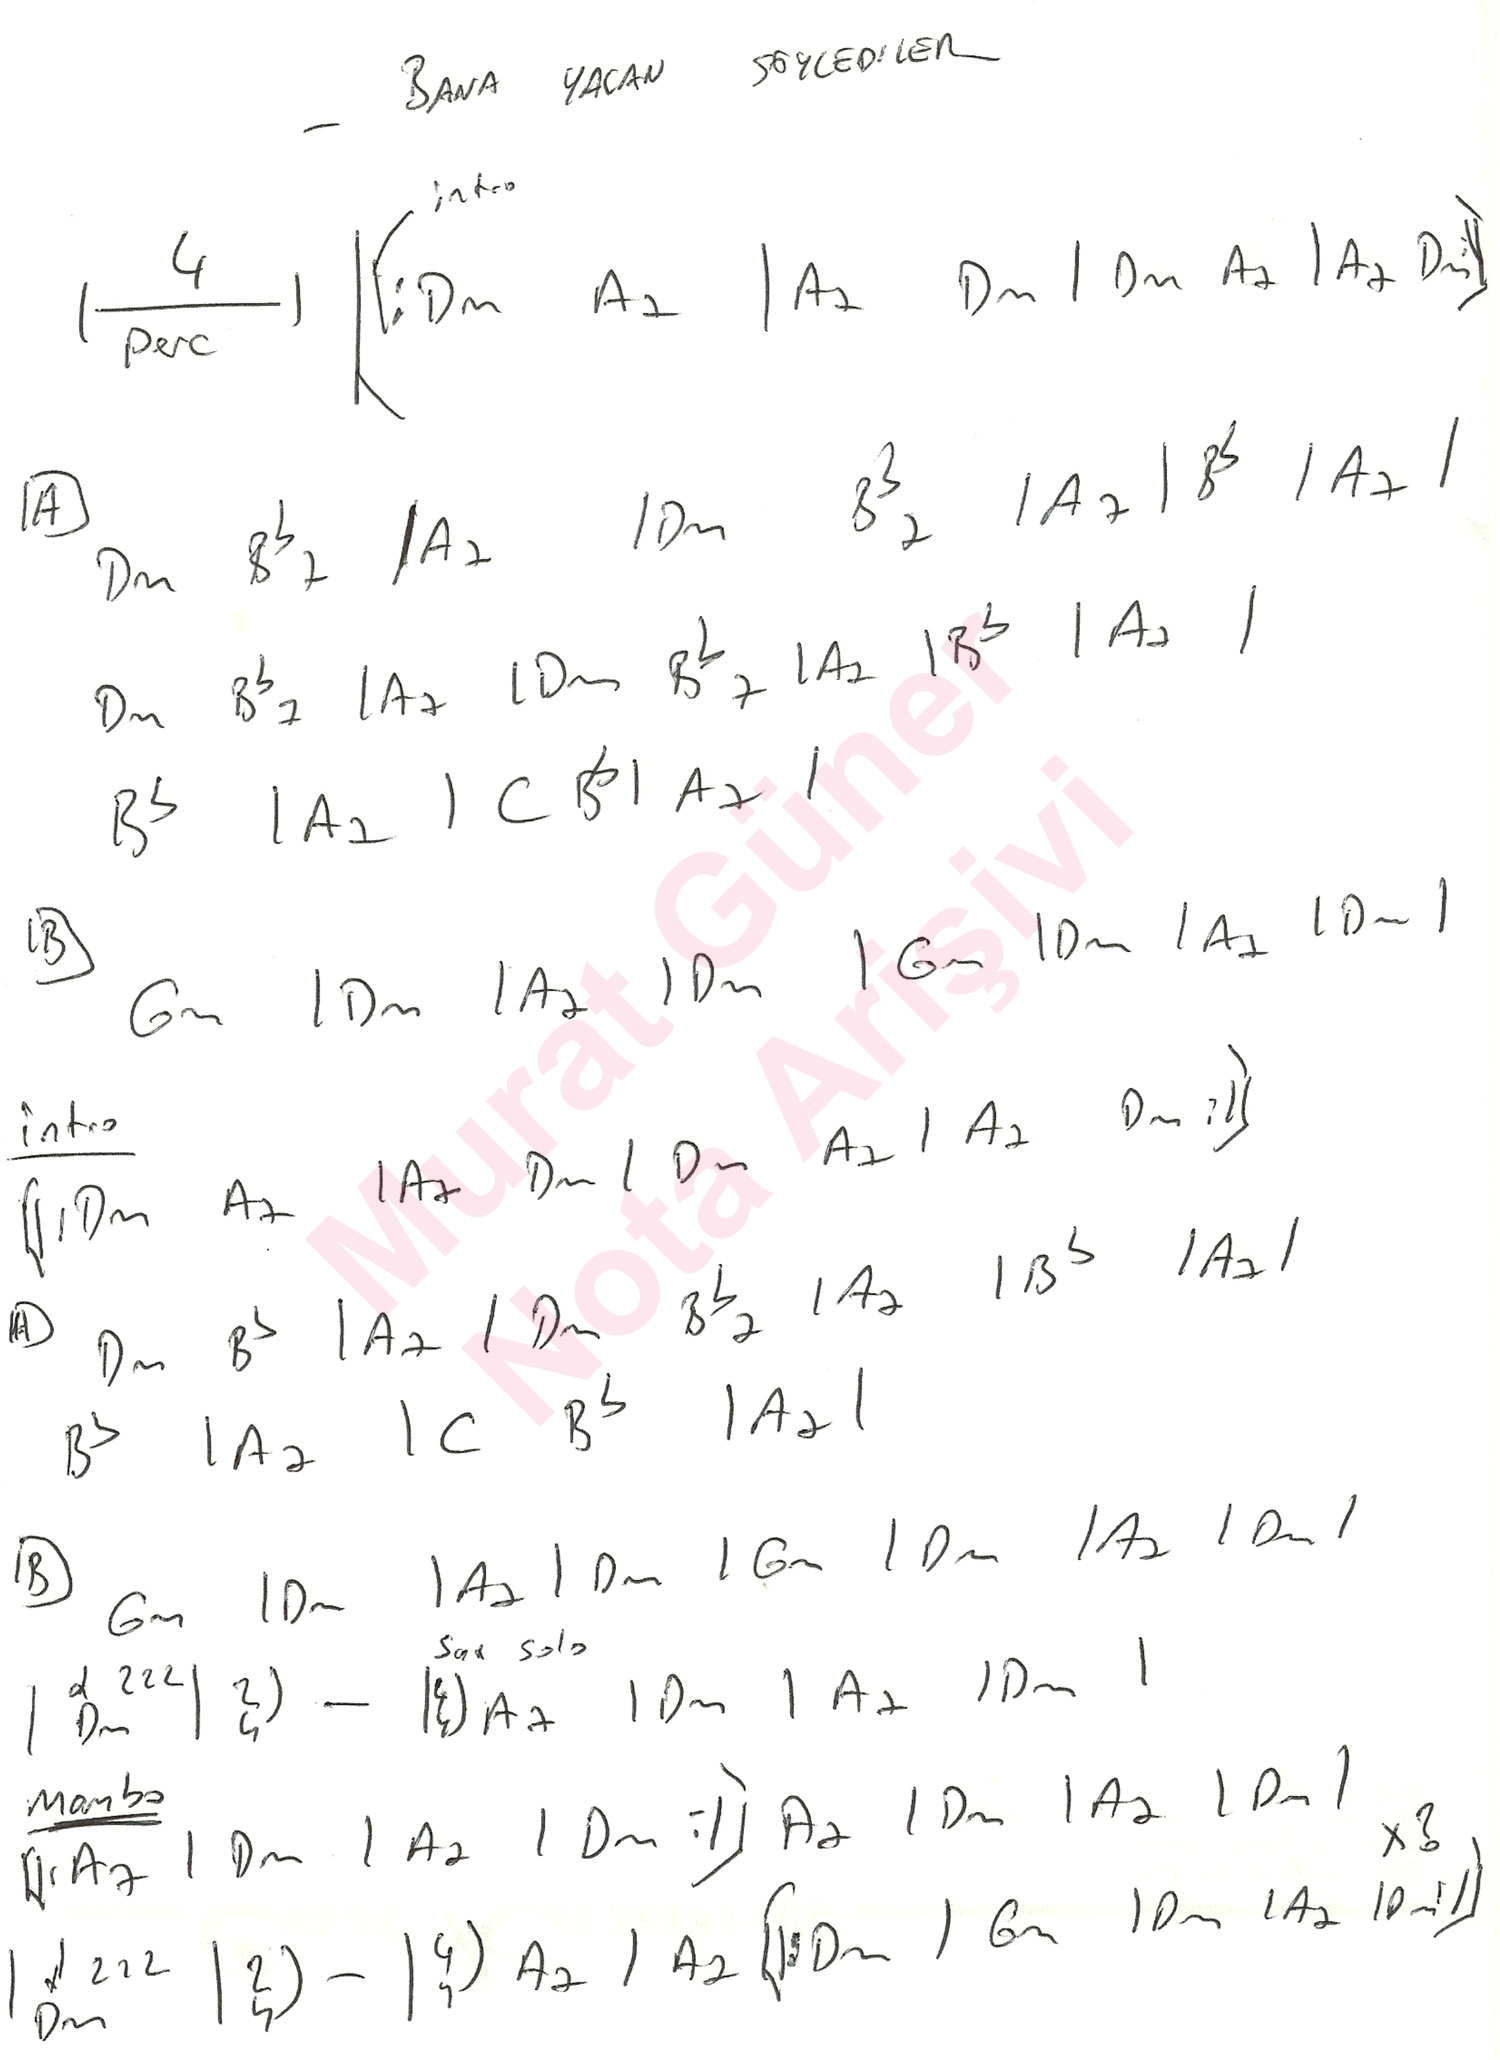 BANA YALAN SÖYLEDİLER
intro
| 4 | |: Dm A7 | A7 Dm | Dm A7 | A7 Dm :|
perc
A
Dm B♭7 | A7 | Dm B♭7 | A7 | B♭ | A7 |
Dm B♭7 | A7 | Dm B♭7 | A7 | B♭ | A7 |
B♭ | A7 | C B♭ | A7 |
B
Gm | Dm | A7 | Dm | Gm | Dm | A7 | Dm |
intro
|: Dm A7 | A7 Dm | Dm A7 | A7 Dm :|
A Dm B♭ | A7 | Dm B♭7 | A7 | B♭ | A7 |
B♭ | A7 | C B♭ | A7 |
B Gm | Dm | A7 | Dm | Gm | Dm | A7 | Dm |
Sax solo
| Dm | 2/4) – | 4/4) A7 | Dm | A7 | Dm |
Mambo
|: A7 | Dm | A7 | Dm :| A7 | Dm | A7 | Dm |
x3
| Dm | 2/4) – | 4/4) A7 | A7 |: Dm | Gm | Dm | A7 | Dm :|
Murat Güner
Nota Arişivi